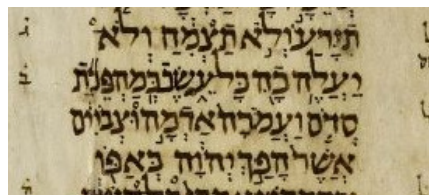 תִזָּרַע וְלֹא תַצְמִחַ וְלֹא
יַעֲלֶה בָהּ כָּל עֵשֶׂב כְּמַהְפֵּכַת
סְדֹם וַעֲמֹרָה אַדְמָה וּצְבֹיִים
אֲשֶׁר הָפַךְ יְהוָה בְּאַפּוֹ